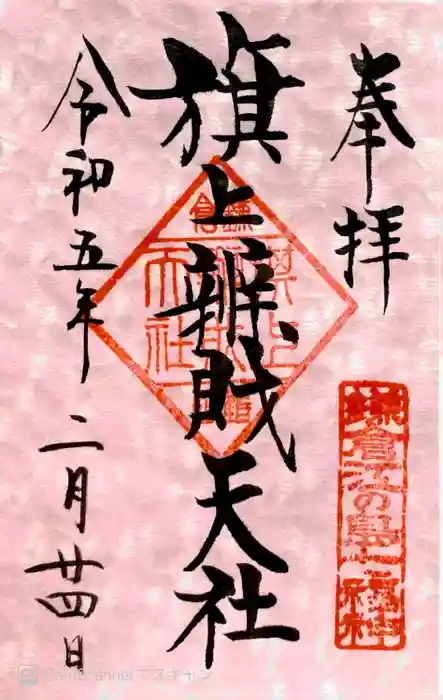 奉拝
旗上辨財天社
令和五年 二月廿四日
鎌倉
旗上
天社
鎌倉江の島七福神
CamScanner でスキャン